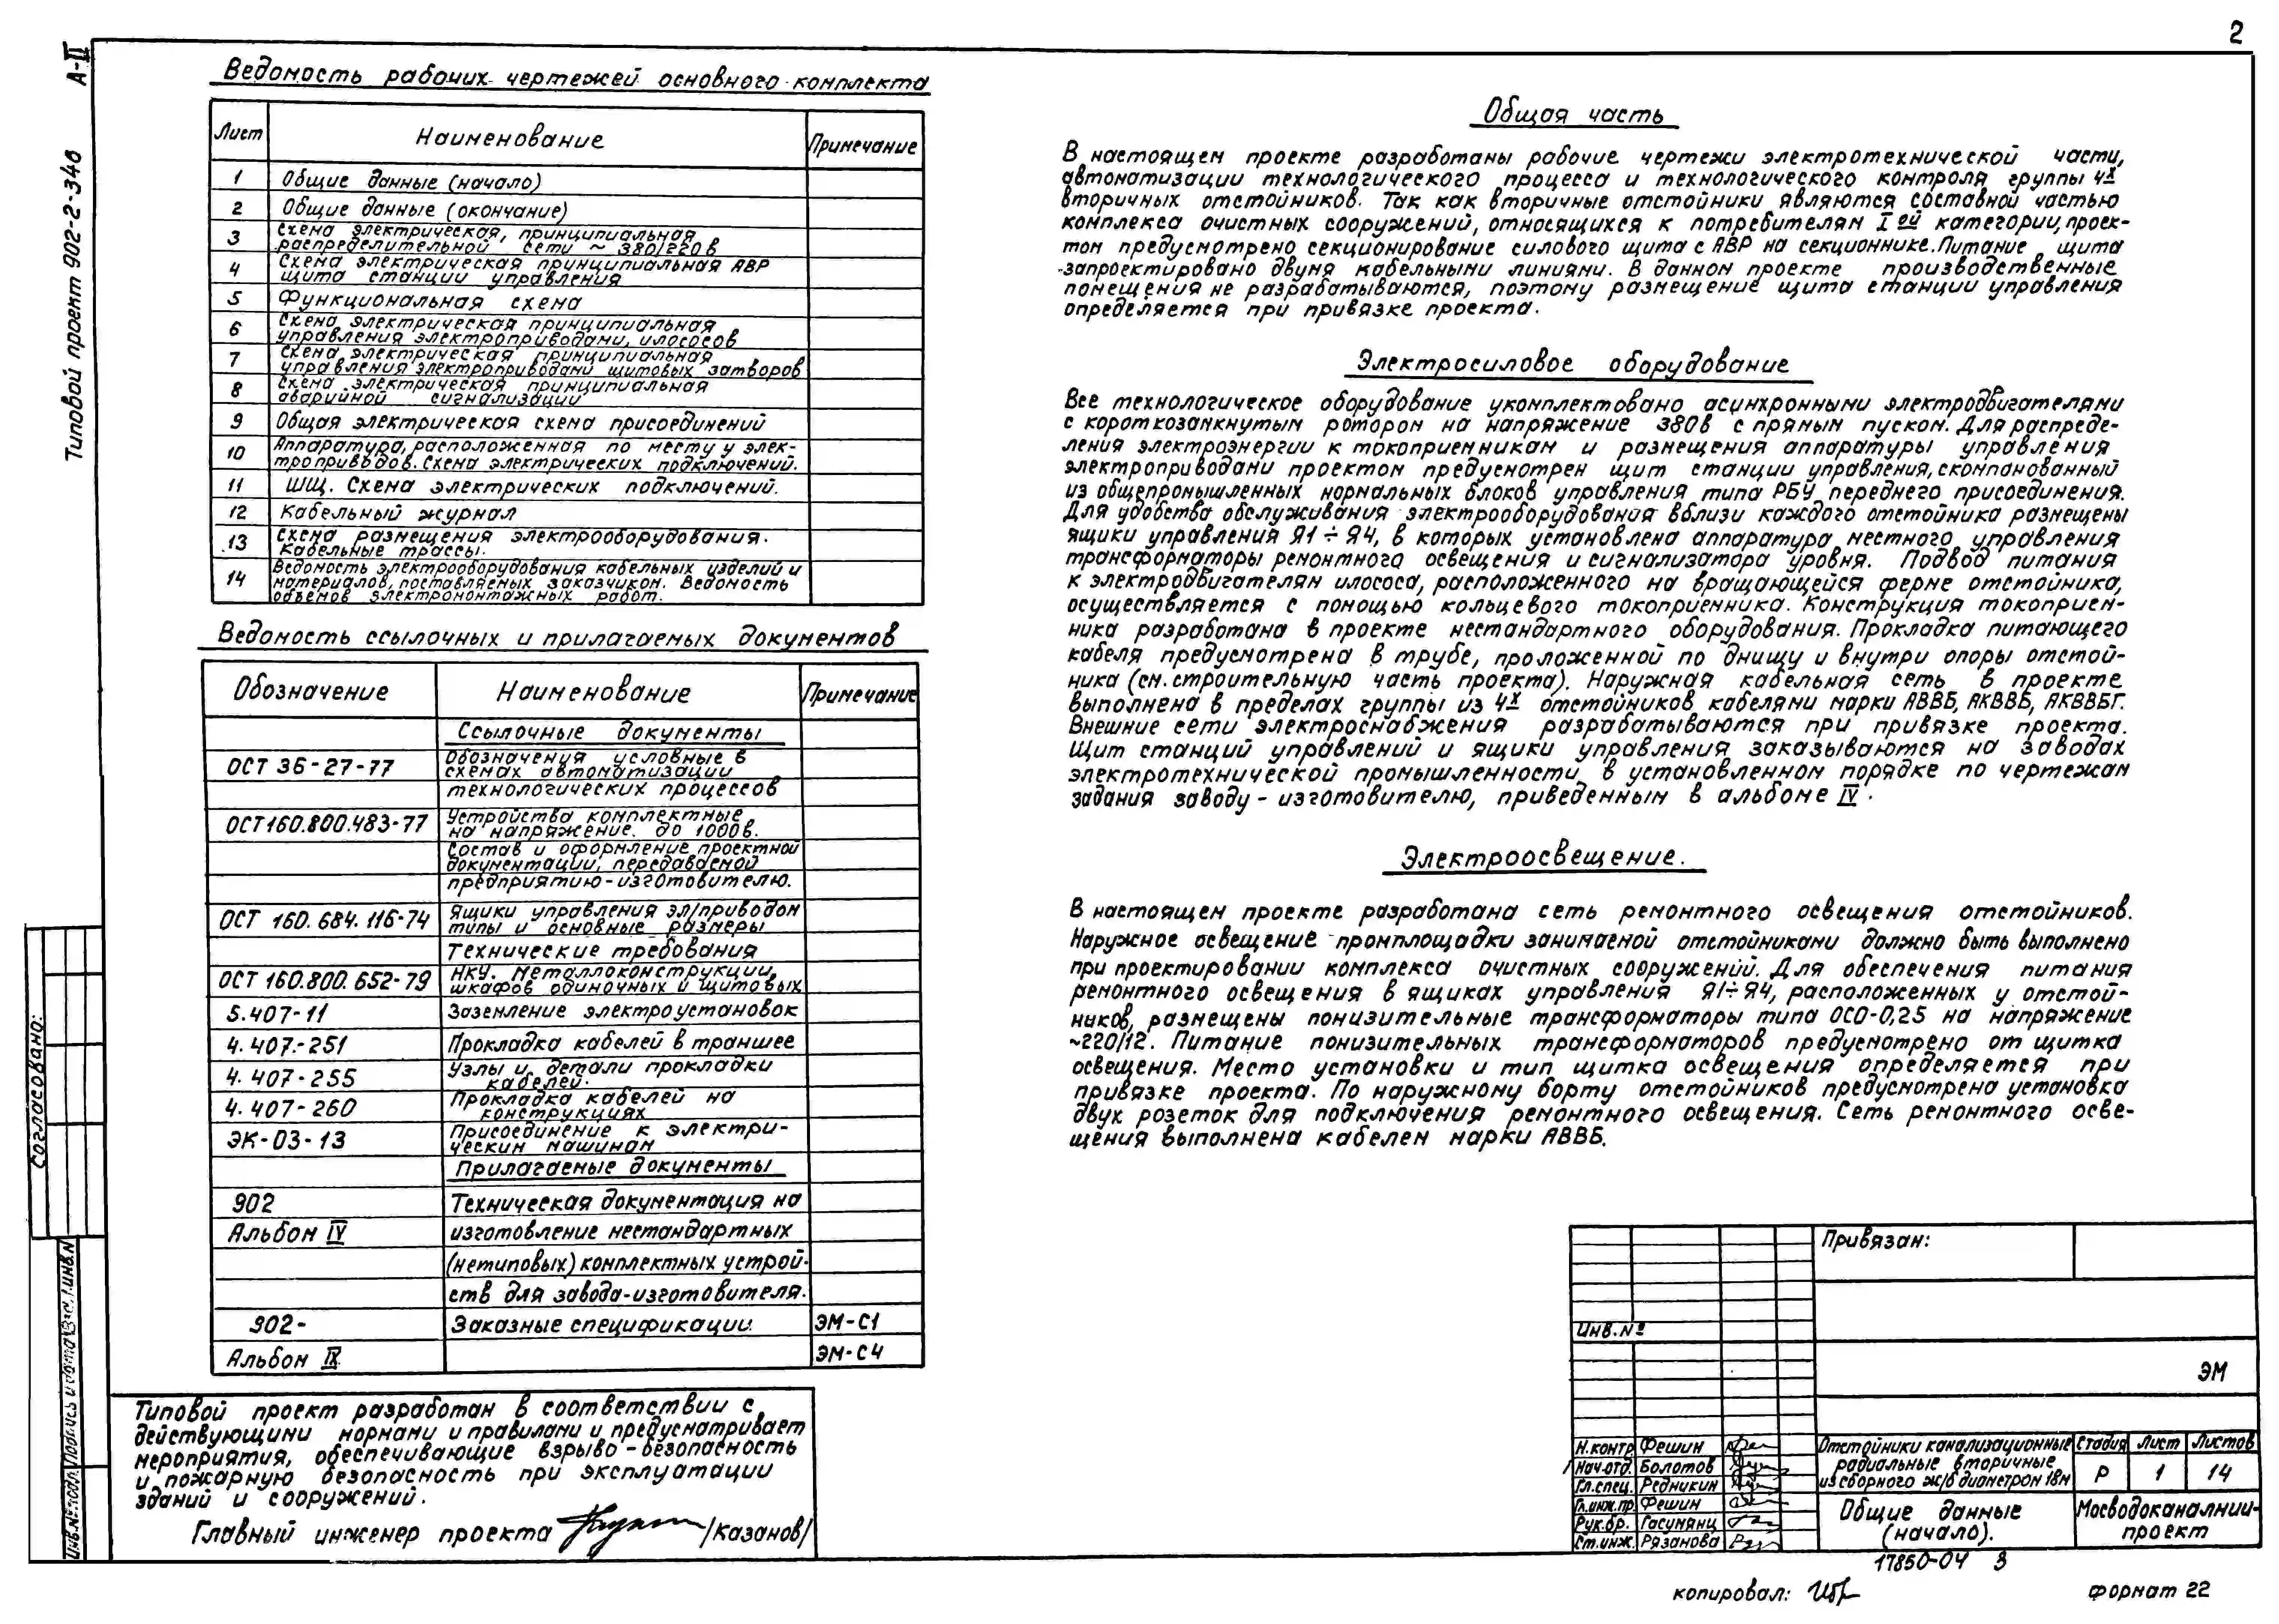 2
А-II
Типовой проект 902-2-346
Ведомость рабочих чертежей основного комплекта
Лист Наименование Примечание
1 Общие данные (начало)
2 Общие данные (окончание)
3 Схема электрическая, принципиальная
распределительной сети ~ 380/220 в
4 Схема электрическая принципиальная АВР
щита станции управления
5 Функциональная схема
6 Схема электрическая принципиальная
управления электроприводами, илососов
7 Схема электрическая принципиальная
управления электроприводами щитовых затворов
8 Схема электрическая принципиальная
аварийной сигнализации
9 Общая электрическая схема присоединений
10 Аппаратура, расположенная по месту у элек-
троприводов. Схема электрических подключений.
11 ШЩ. Схема электрических подключений.
12 Кабельный журнал
13 Схема размещения электрооборудования.
Кабельные трассы.
14 Ведомость электрооборудования кабельных изделий и
материалов, поставляемых заказчиком. Ведомость
объемов электромонтажных работ.
Ведомость ссылочных и прилагаемых документов
Обозначение Наименование Примечание
Ссылочные документы
ОСТ 36-27-77 Обозначения условные в
схемах автоматизации
технологических процессов
ОСТ160.800.483-77 Устройства комплектные
на напряжение до 1000в.
Состав и оформление проектной
документации, передаваемой
предприятию-изготовителю.
ОСТ 160.684.116-74 Ящики управления эл/приводом
типы и основные размеры
Технические требования
ОСТ 160.800.652-79 НКУ. Металлоконструкции,
шкафов одиночных и щитовых
5.407-11 Заземление электроустановок
4.407-251 Прокладка кабелей в траншее
4.407-255 Узлы и детали прокладки
кабелей.
4.407-260 Прокладка кабелей на
конструкциях
ЭК-03-13 Присоединение к электри-
ческим машинам
Прилагаемые документы
902 Техническая документация на
Альбом IV изготовление нестандартных
(нетиповых) комплектных устрой-
ств для завода-изготовителя.
902- Заказные спецификации ЭМ-С1
Альбом IX ЭМ-С4
Типовой проект разработан в соответствии с
действующими нормами и правилами и предусматривает
мероприятия, обеспечивающие взрыво-безопасность
и пожарную безопасность при эксплуатации
зданий и сооружений.
Главный инженер проекта /Казанов/
Общая часть
В настоящем проекте разработаны рабочие чертежи электротехнической части,
автоматизации технологического процесса и технологического контроля группы 4х
вторичных отстойников. Так как вторичные отстойники являются составной частью
комплекса очистных сооружений, относящихся к потребителям I ой категории, проек-
том предусмотрено секционирование силового щита с АВР на секционнике. Питание щита
запроектировано двумя кабельными линиями. В данном проекте производственные
помещения не разрабатываются, поэтому размещение щита станции управления
определяется при привязке проекта.
Электросиловое оборудование
Все технологическое оборудование укомплектовано асинхронными электродвигателями
с короткозамкнутым ротором на напряжение 380в с прямым пуском. Для распреде-
ления электроэнергии к токоприемникам и размещения аппаратуры управления
электроприводами проектом предусмотрен щит станции управления, скомпанованный
из общепромышленных нормальных блоков управления типа РБУ переднего присоединения.
Для удобства обслуживания электрооборудования вблизи каждого отстойника размещены
ящики управления Я1÷Я4, в которых установлена аппаратура местного управления
трансформаторы ремонтного освещения и сигнализатора уровня. Подвод питания
к электродвигателям илососа, расположенного на вращающейся ферме отстойника,
осуществляется с помощью кольцевого токоприемника. Конструкция токоприем-
ника разработана в проекте нестандартного оборудования. Прокладка питающего
кабеля предусмотрена в трубе, проложенной по днищу и внутри опоры отстой-
ника (см. строительную часть проекта). Наружная кабельная сеть в проекте
выполнена в пределах группы из 4х отстойников кабелями марки АВВБ, АКВВБ, АКВВБГ.
Внешние сети электроснабжения разрабатываются при привязке проекта.
Щит станций управлений и ящики управления заказываются на заводах
электротехнической промышленности в установленном порядке по чертежам
задания заводу-изготовителю, приведенным в альбоме IV.
Электроосвещение.
В настоящем проекте разработана сеть ремонтного освещения отстойников.
Наружное освещение промплощадки занимаемой отстойниками должно быть выполнено
при проектировании комплекса очистных сооружений. Для обеспечения питания
ремонтного освещения в ящиках управления Я1÷Я4, расположенных у отстой-
ников, размещены понизительные трансформаторы типа ОСО-0,25 на напряжение
~220/12. Питание понизительных трансформаторов предусмотрено от щитка
освещения. Место установки и тип щитка освещения определяется при
привязке проекта. По наружному борту отстойников предусмотрена установка
двух розеток для подключения ремонтного освещения. Сеть ремонтного осве-
щения выполнена кабелем марки АВВБ.
Согласовано:
Инв.№подл. Подпись и дата Взам.инв.№
Привязан:
Инв.№
ЭМ
Н.контр Фешин
Нач.отд Болотов
Гл.спец. Редникин
Гл.инж.пр. Фешин
Рук.бр. Гасумянц
Ст.инж. Рязанова
Отстойники канализационные
радиальные вторичные
из сборного ж/б диаметром 18м
Стадия Лист Листов
Р 1 14
Общие данные
(начало).
Мосводоканалнии-
проект
17850-04 3
копировал:
формат 22